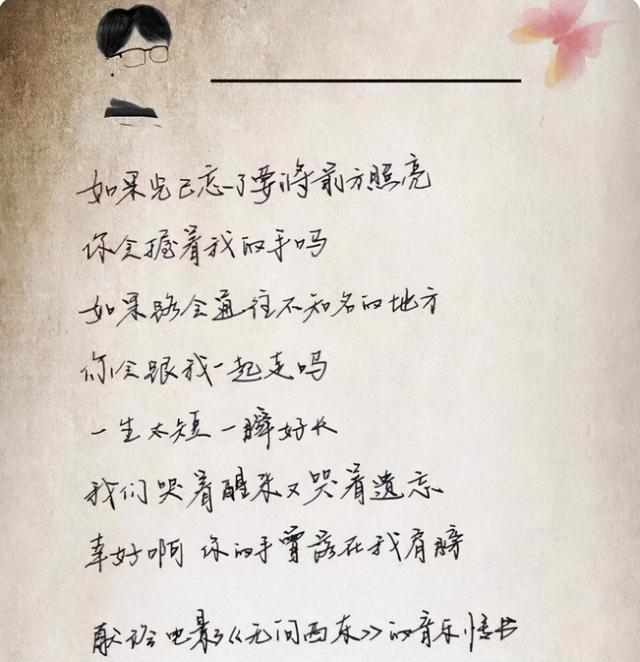 如果光已忘了要将前方照亮
你会握着我的手吗
如果路会通往不知名的地方
你会跟我一起走吗
一生太短 一瞬好长
我们哭着醒来又哭着遗忘
幸好啊 你的手曾落在我肩膀
献给电影《无问西东》的音乐情书